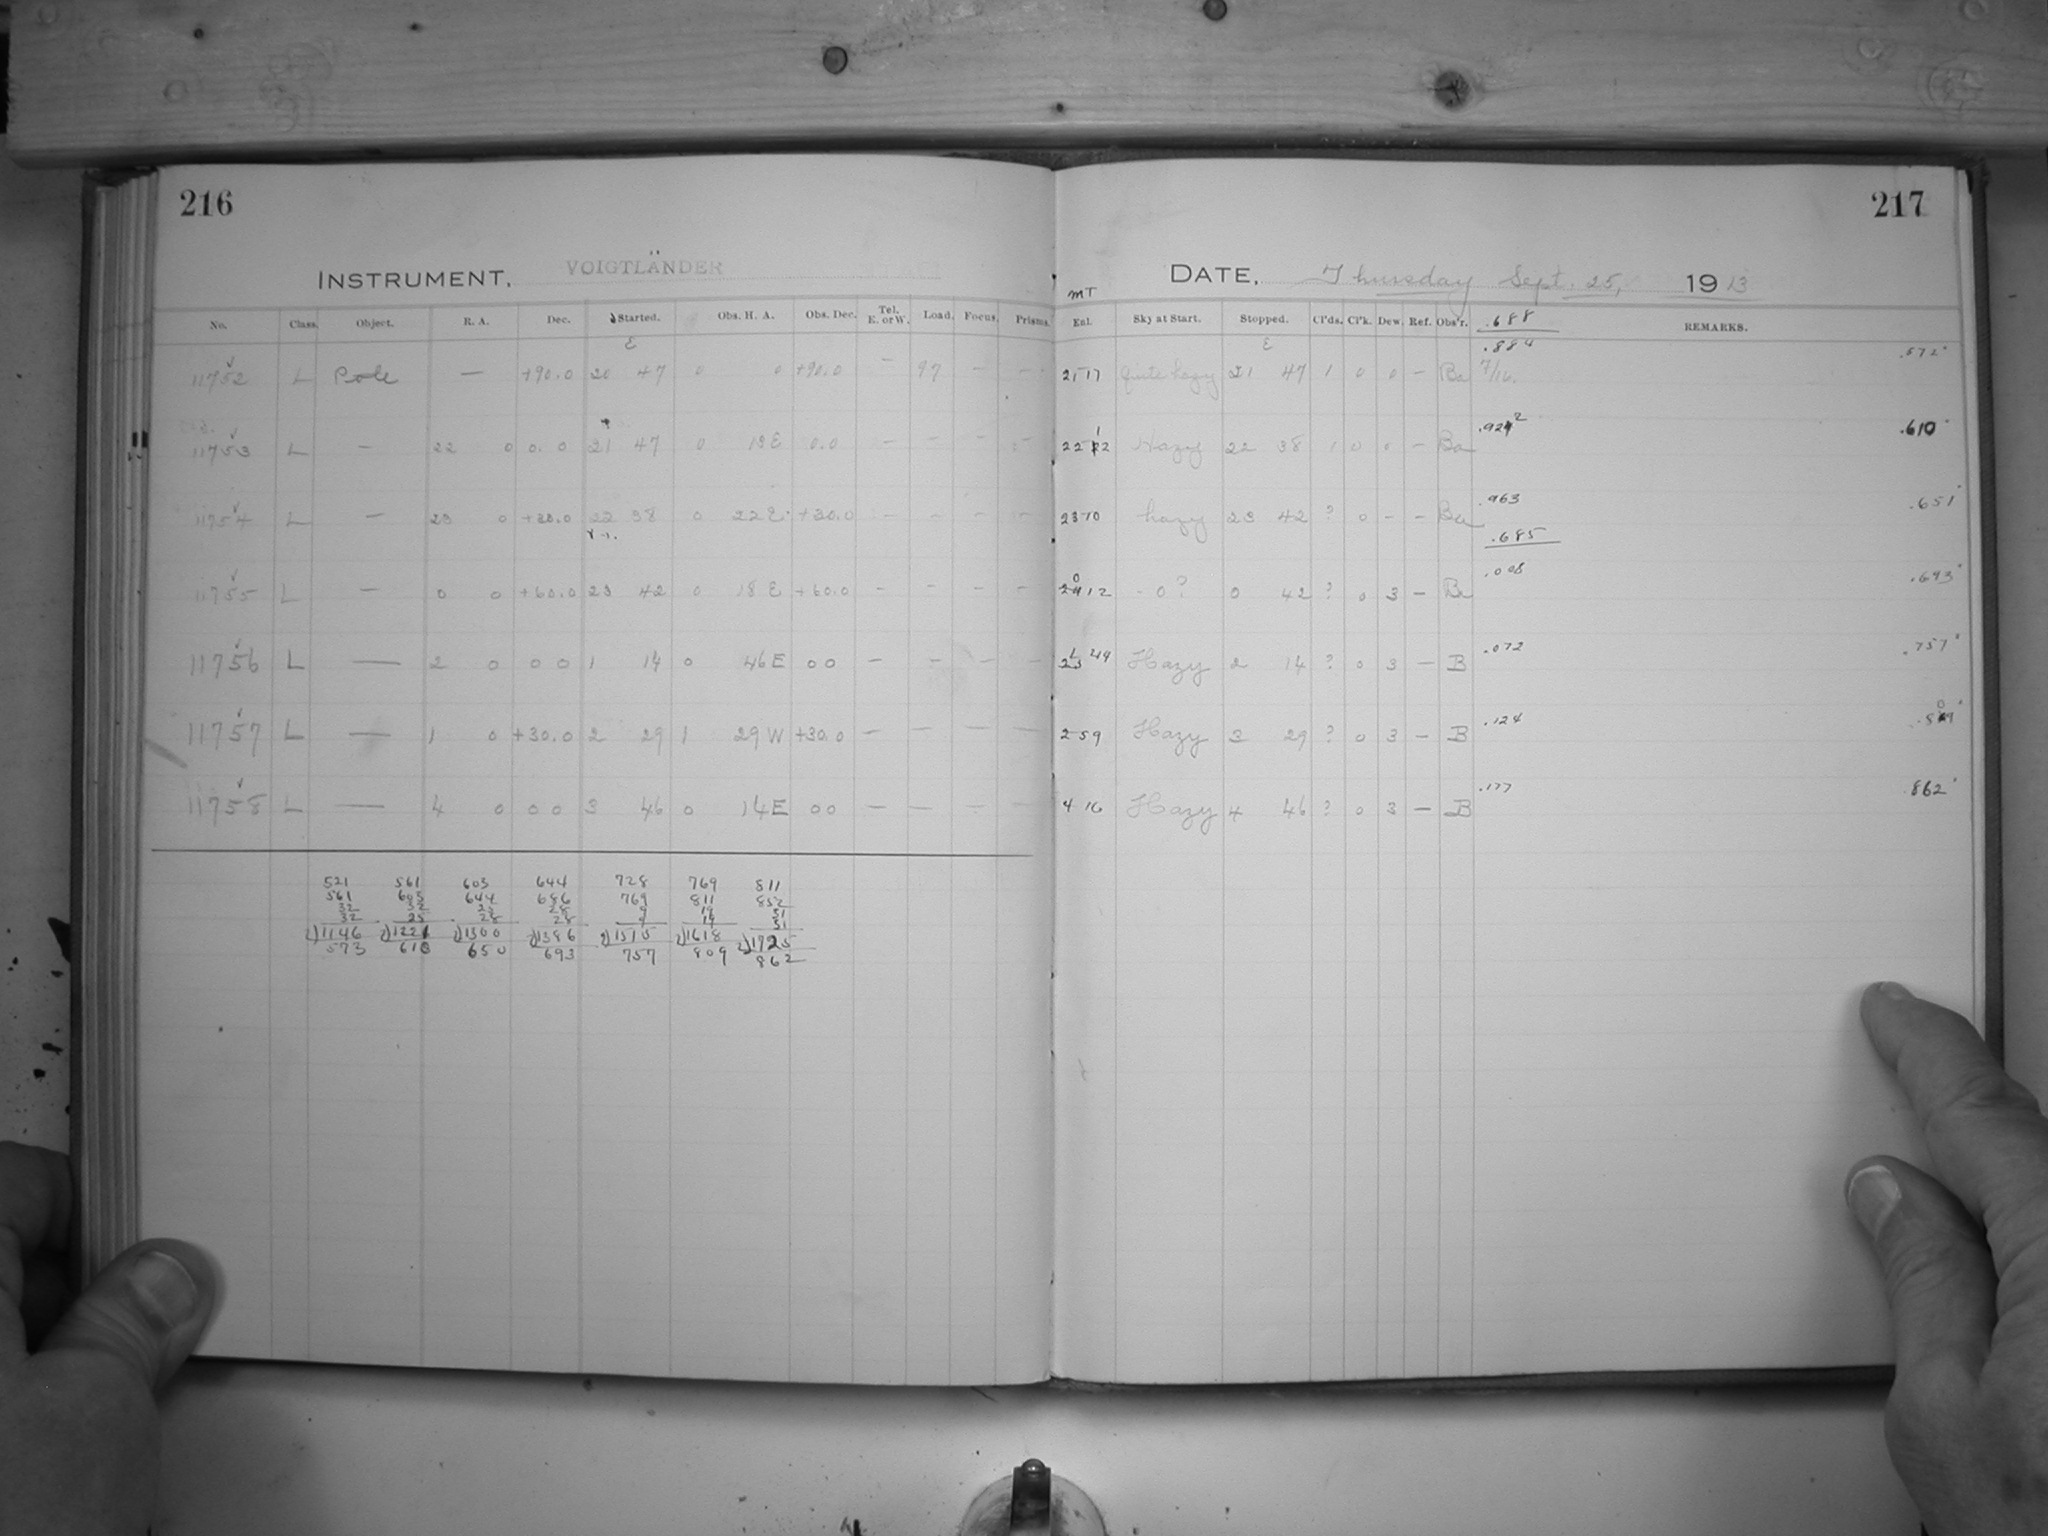 216
217
INSTRUMENT, VOIGTLÄNDER
DATE, Thursday Sept. 25, 1913
MT
No. Class. Object. R. A. Dec. Started. Obs. H. A. Obs. Dec. Tel. E. or W. Load. Focus. Prisms. Ext. Sky at Start. Stopped. Cl'ds. Cl'k. Dew. Ref. Obs'r. .688 REMARKS.
E E .884 .572
11752 L Pole — +90.0 20 47 0 0 +90.0 — 97 — — 21 17 Quite hazy 21 47 1 0 0 — Ba 7/16.
11753 L — 22 0 0.0 21 47 0 13 E 0.0 — — — — 22 12 Hazy 22 38 1 0 0 — Ba .922 .610
11754 L — 23 0 +30.0 22 38 0 22 E +30.0 — — — — 23 10 hazy 23 42 ? 0 — — Ba .963 .651
.685
11755 L — 0 0 +60.0 23 42 0 18 E +60.0 — — — — 0 12 - 0 ? 0 42 ? 0 3 — Ba .008 .693
11756 L — 2 0 0 0 1 14 0 46 E 0 0 — — — — 1 44 Hazy 2 14 ? 0 3 — B .072 .757
11757 L — 1 0 +30.0 2 29 1 29 W +30.0 — — — — 2 59 Hazy 3 29 ? 0 3 — B .124
11758 L — 4 0 0 0 3 46 0 14 E 0 0 — — — — 4 16 Hazy 4 46 ? 0 3 — B .177 862
521 561 603 644 728 769 811
561 603 644 686 769 811 852
32 32 28 28 9 19 31
32 25 28 28 9 19 31
2)1146 2)1221 2)1300 2)1386 2)1515 2)1618 2)1725
573 610 650 693 757 809 862